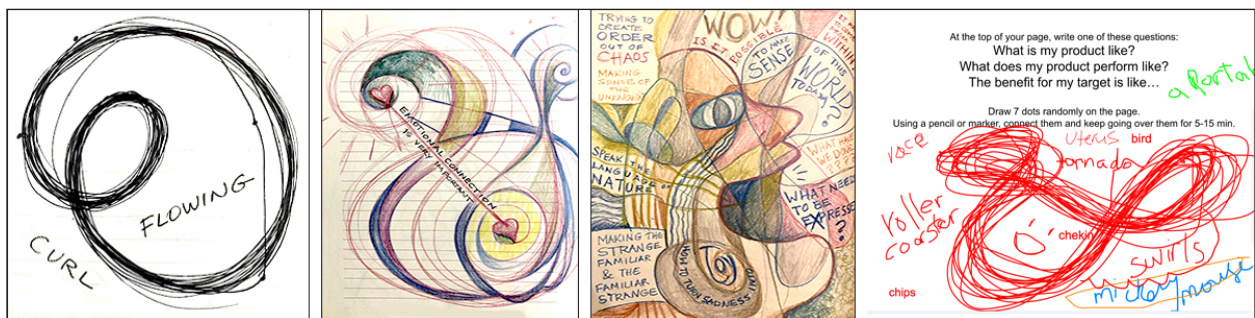 FLOWING
CURL
EMOTIONAL CONNECTION
IS
VERY IMPORTANT
TRYING TO
CREATE
ORDER
OUT OF
CHAOS
MAKING
SENSE OF
THE
UNKNOWN
WOW!
IS IT POSSIBLE
TO MAKE
SENSE
OF THIS
WORLD
TODAY?
WITHIN
SPEAK THE
LANGUAGE OF
NATURE
WHAT HAVE
WE DONE
???
WHAT NEEDS
TO BE
EXPRESSED
?
MAKING THE
STRANGE
FAMILIAR
& THE
FAMILIAR
STRANGE
HOW TO TURN SADNESS INTO
JOY
At the top of your page, write one of these questions:
What is my product like?
What does my product perform like?
The benefit for my target is like…
a Portal
Draw 7 dots randomly on the page.
Using a pencil or marker, connect them and keep going over them for 5-15 min.
race
uterus
bird
tornado
roller
coaster
chekin
swirls
chips
mickey mouse